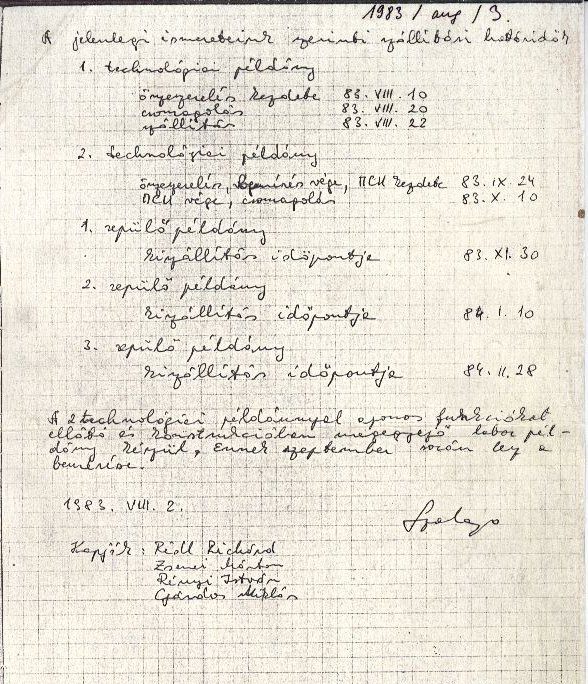 1983 / aug / 3.
A jelenlegi ismereteink szerinti szállítási határidők
1. technológiai példány
összeszerelés kezdete 83. VIII. 10
csomagolás 83. VIII. 20
szállítás 83. VIII. 22
2. technológiai példány
összeszerelés, bemérés vége, ПСИ kezdete 83. IX. 24
ПСИ vége, csomagolás 83. X. 10
1. repülő példány
kiszállítás időpontja 83. XI. 30
2. repülő példány
kiszállítás időpontja 84. I. 10
3. repülő példány
kiszállítás időpontja 84. II. 28
A 2 technológiai példánnyal azonos funkciókat
ellátó és konstrukcióban megegyező labor pél-
dány készül, Ennek szeptember során lesz a
bemérése.
1983. VIII. 2.
Kapják: Riedl Richárd
Zsenei Márton
Rényi István
Gárdos Miklós